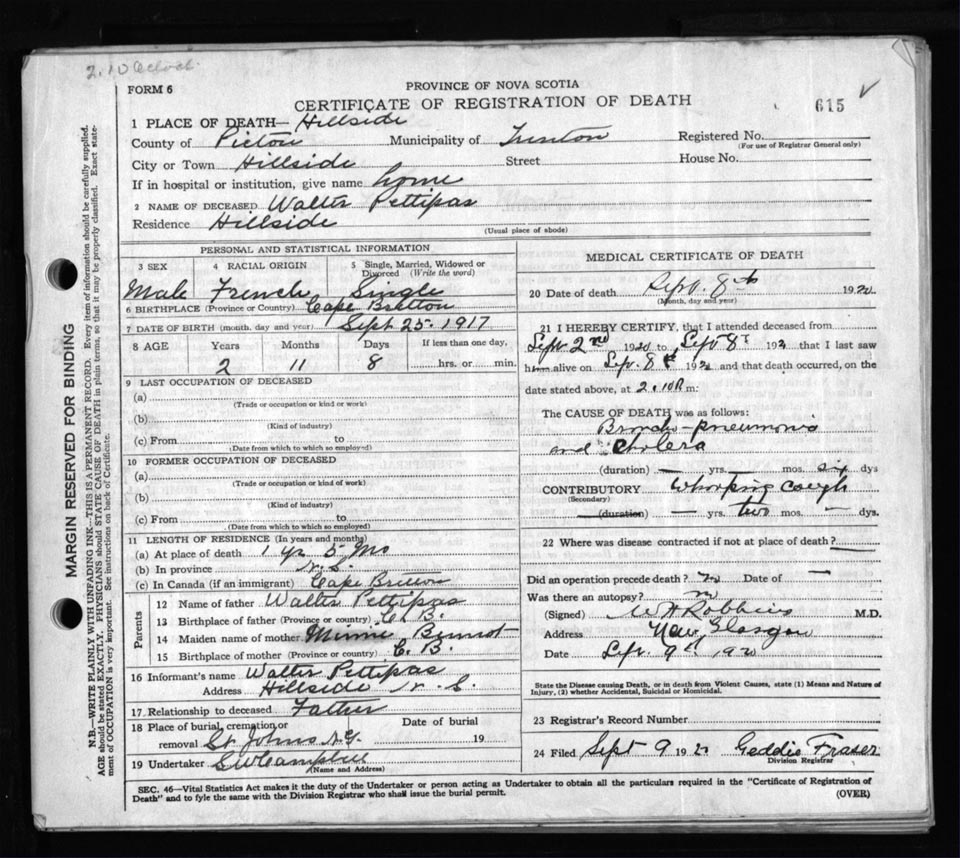 2.10 o'clock
FORM 6
PROVINCE OF NOVA SCOTIA
CERTIFICATE OF REGISTRATION OF DEATH
615
1 PLACE OF DEATH— Hillside
County of Pictou Municipality of Trenton Registered No.
(For use of Registrar General only)
City or Town Hillside Street House No.
If in hospital or institution, give name home
2 NAME OF DECEASED Walter Pettipas
Residence Hillside
(Usual place of abode)
PERSONAL AND STATISTICAL INFORMATION
3 SEX 4 RACIAL ORIGIN 5 Single, Married, Widowed or Divorced (Write the word)
Male French Single
6 BIRTHPLACE (Province or Country) Cape Bretton
7 DATE OF BIRTH (month, day and year) Sept 25. 1917
8 AGE Years Months Days If less than one day,
2 11 8 hrs. or min.
9 LAST OCCUPATION OF DECEASED
(a)
(Trade or occupation or kind or work)
(b)
(Kind of industry)
(c) From to
(Date from which to which so employed)
10 FORMER OCCUPATION OF DECEASED
(a)
(Trade or occupation or kind of work)
(b)
(Kind of industry)
(c) From to
(Date from which to which so employed)
11 LENGTH OF RESIDENCE (In years and months)
(a) At place of death 1 yr 5 Mo
(b) In province N.S.
(c) In Canada (if an immigrant) Cape Bretton
Parents
12 Name of father Walter Pettipas
13 Birthplace of father (Province or country) C.B.
14 Maiden name of mother Minnie
15 Birthplace of mother (Province or country) C.B.
16 Informant's name Walter Pettipas
Address Hillside N.S.
17 Relationship to deceased Father
18 Place of burial, cremation or removal St Johns N.G. Date of burial 19
19 Undertaker
(Name and Address)
MEDICAL CERTIFICATE OF DEATH
20 Date of death Sept. 8th 1920
(Month, day and year)
21 I HEREBY CERTIFY, that I attended deceased from
Sept 2nd 1920 to Sept 8th 192 that I last saw
him alive on Sept. 8th 192 and that death occurred, on the
date stated above, at 2.10 m:
The CAUSE OF DEATH was as follows:
Broncho-pneumonia
and Cholera
(duration) — yrs. — mos. six dys
CONTRIBUTORY Whooping Cough
(Secondary)
(duration) — yrs. two mos. — dys.
22 Where was disease contracted if not at place of death?
Did an operation precede death? no Date of —
Was there an autopsy? no
(Signed) W H Robbins M.D.
Address New Glasgow
Date Sept. 9th 1920
State the Disease causing Death, or in death from Violent Causes, state (1) Means and Nature of
Injury, (2) whether Accidental, Suicidal or Homicidal.
23 Registrar's Record Number
24 Filed Sept 9 192 Geddie Fraser
Division Registrar
SEC. 46—Vital Statistics Act makes it the duty of the Undertaker or person acting as Undertaker to obtain all the particulars required in the "Certificate of Registration of
Death" and to fyle the same with the Division Registrar who shall issue the burial permit.
(OVER)
MARGIN RESERVED FOR BINDING
N.B.—WRITE PLAINLY WITH UNFADING INK—THIS IS A PERMANENT RECORD. Every item of information should be carefully supplied.
AGE should be stated EXACTLY. PHYSICIANS should STATE CAUSE OF DEATH in plain terms, so that it may be properly classified. Exact state-
ment of OCCUPATION is very important. See instructions on back of Certificate.